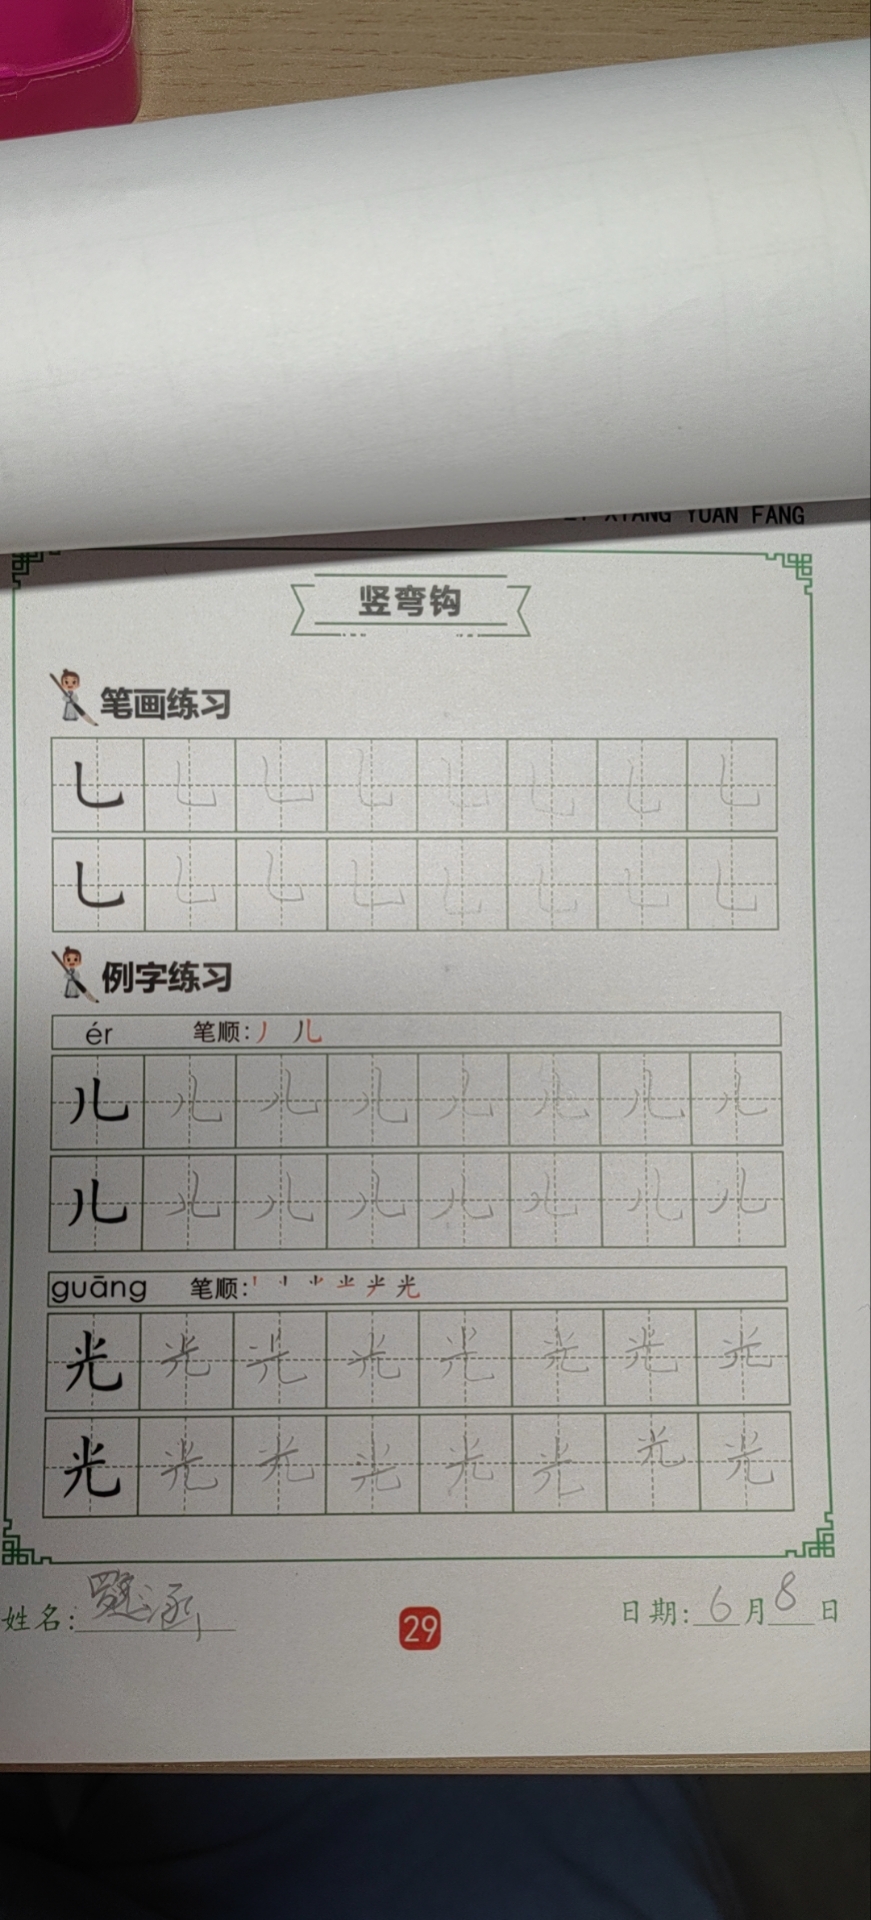 XIANG YUAN FANG
竖弯钩
笔画练习
乚 乚 乚 乚 乚 乚 乚 乚
乚 乚 乚 乚 乚 乚 乚 乚
例字练习
ér 笔顺: 丿 儿
儿 儿 儿 儿 儿 儿 儿 儿
儿 儿 儿 儿 儿 儿 儿 儿
guāng 笔顺:
光 光 光 光 光 光 光 光
光 光 光 光 光 光 光 光
姓名: 涵
29
日期: 6 月 8 日